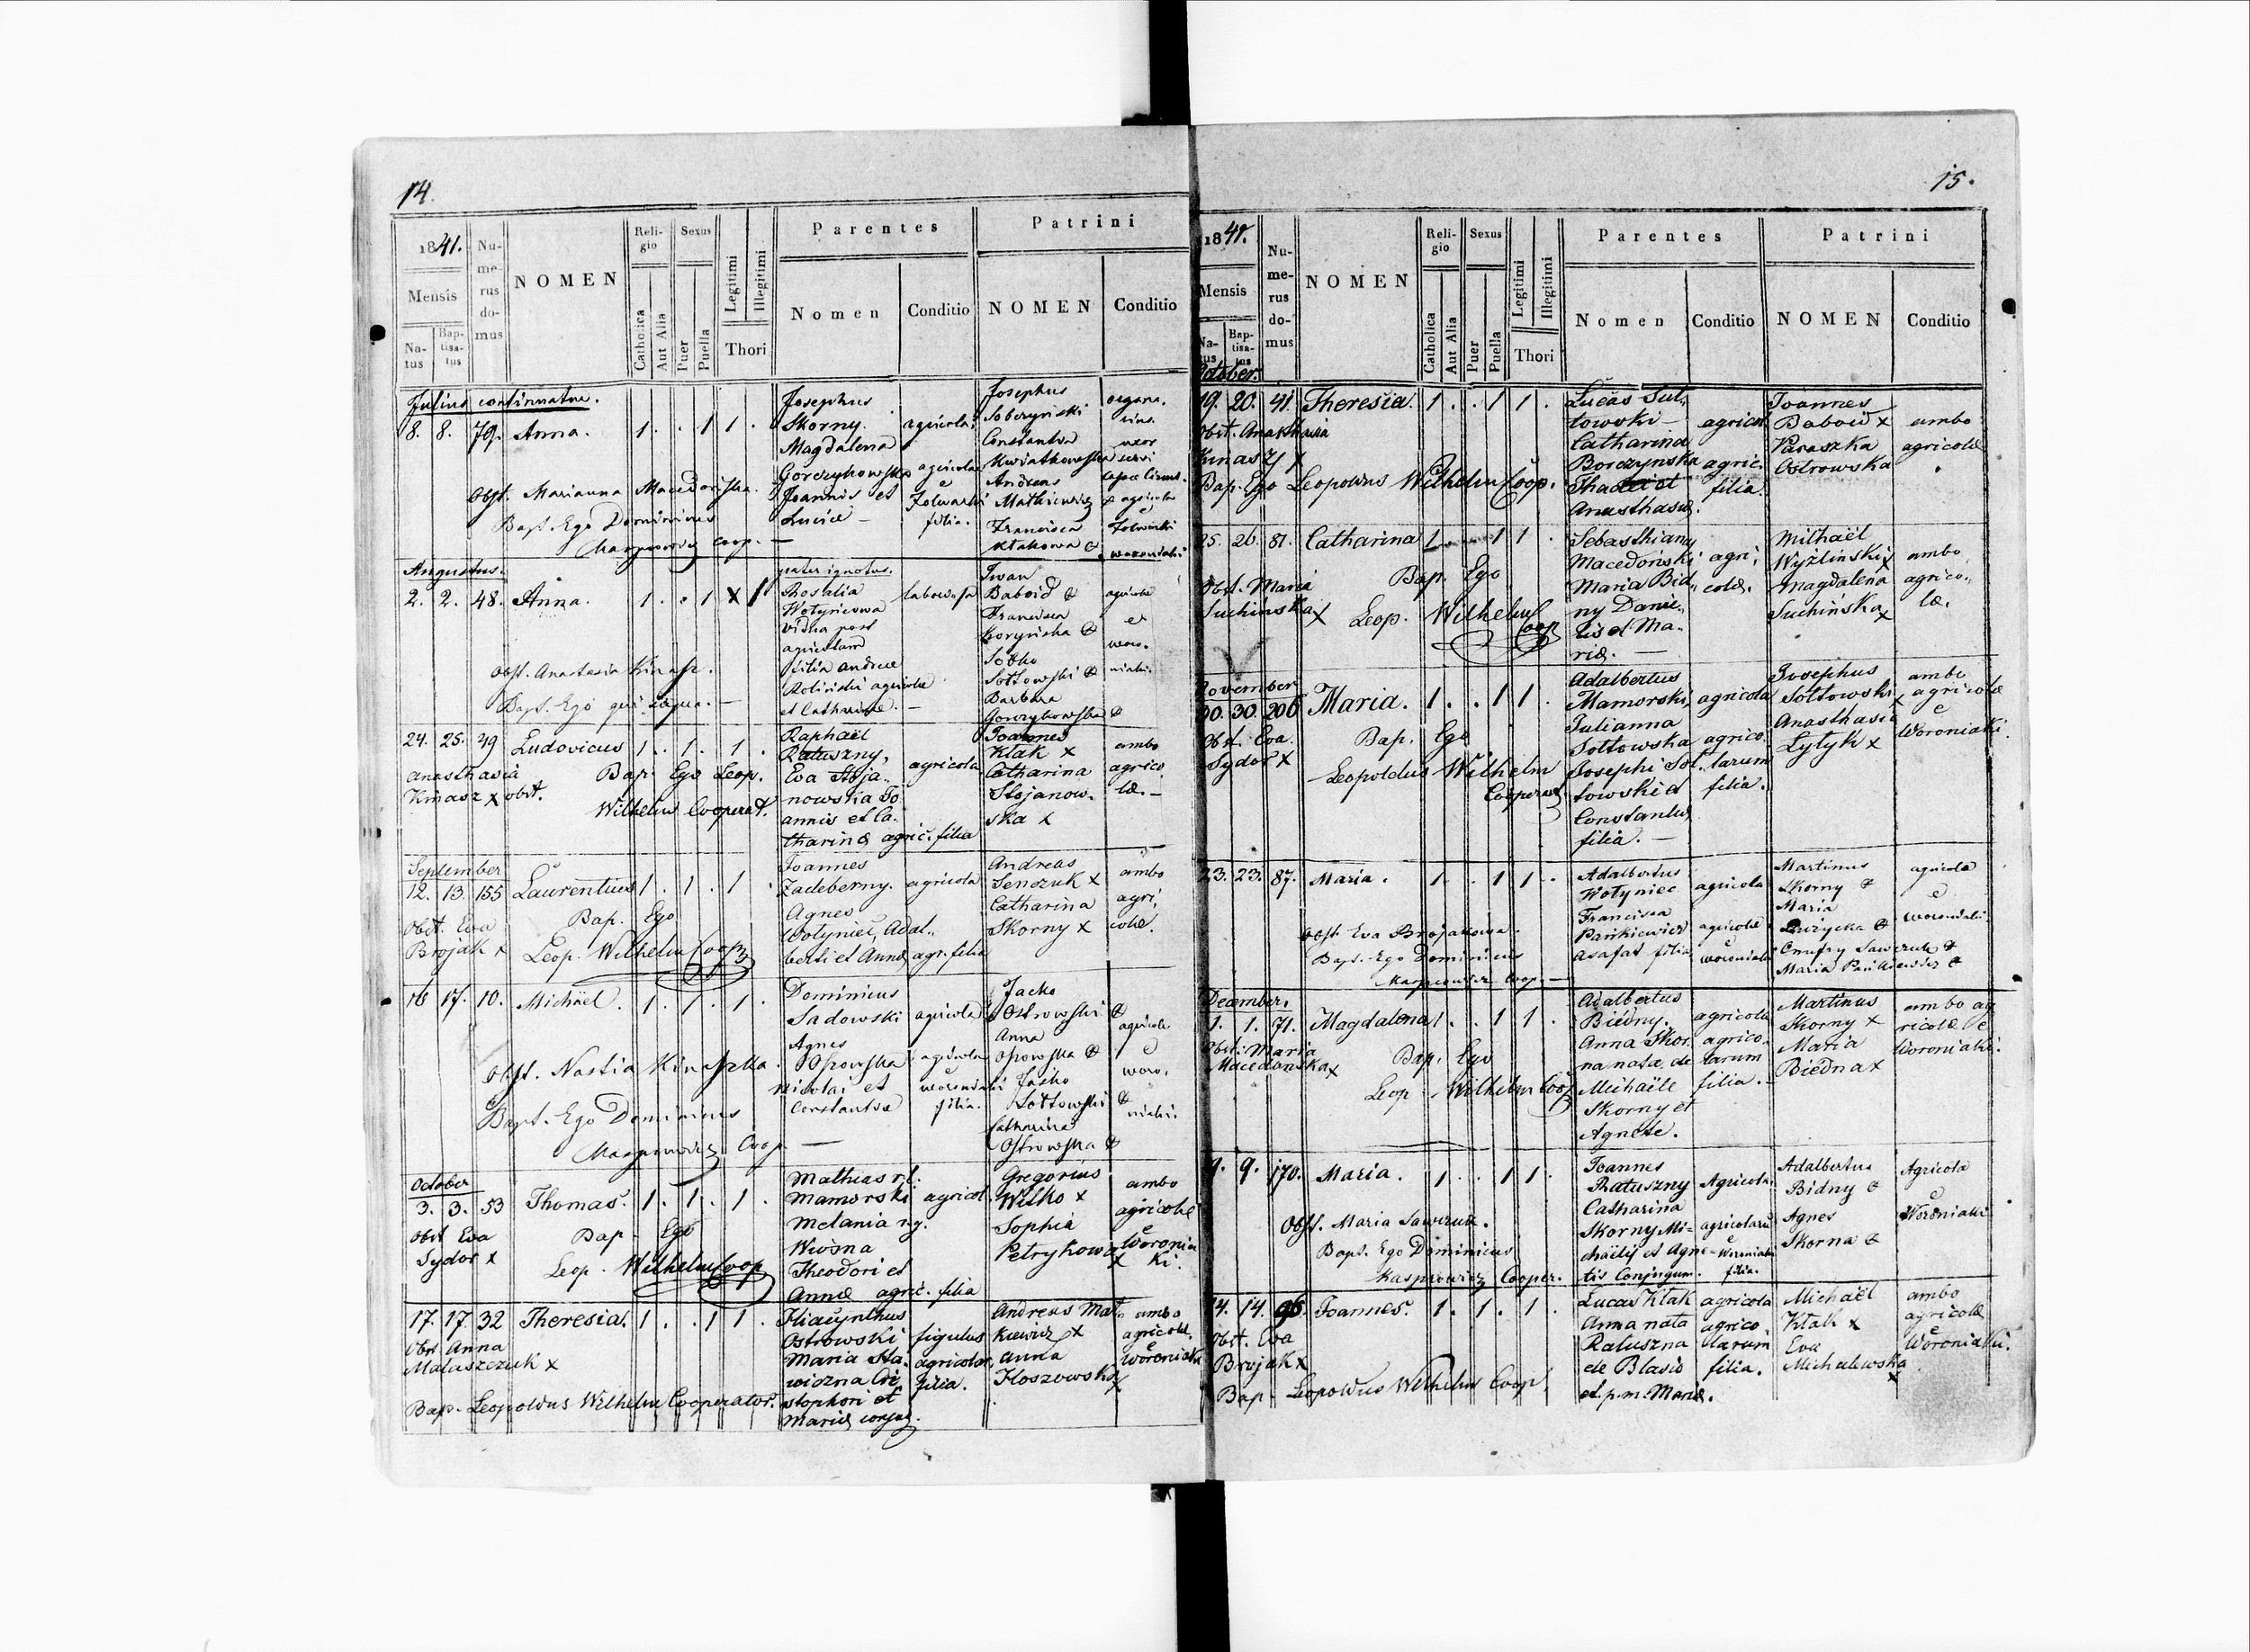 14.
1841.
Mensis
Na-
tus
Bap-
tisa-
tus
Nu-
me-
rus
do-
mus
NOMEN
Reli-
gio
Catholica
Aut Alia
Sexus
Puer
Puella
Legitimi
Illegitimi
Thori
Parentes
Nomen
Conditio
Patrini
NOMEN
Conditio
Julius continuatur.
8. 8. 79. Anna. 1. . . 1 1 .
Obst. Marianna
Bapt. Ego Dominicus
coop. —
Josephus
Skorny.
Magdalena
Gorczykowska
Joannis et
Luciæ —
agricola
agricolæ
e
filia.
Josephus
Sobczynski
Constantia
Kwiatkowska
Andreas
Matkiewicz
Francisca
Ktakowa
organa.
rius.
uxor
Augustus.
2. 2. 48. Anna. 1. . . 1 X 1
Obst. Anastasia Kinasz.
Bapt. Ego qui supra. —
pater ignotus.
Rosalia
Wotyncowa
vidua post
agricolam
filia Andreæ
agricolæ
et Catharinæ. —
Iwan
Baboid
Francisca
Sobko
Sottowski
Barbara
Gorczykowska
agricolæ
e
woro.
niaki.
24. 25. 49 Ludovicus 1. . 1. . 1 .
Anasthasia
Kinasz x obst.
Bap. Ego Leop.
Wilhelm Cooperat.
Raphaël
Ratuszny,
Eva Stoja-
nowska Jo
annis et Ca-
tharinæ agric. filia
agricola
Joannes
Ktak x
Catharina
Stojanow.
ska x
ambo
agrico
læ. —
September
12. 13. 155 Laurentius 1. . 1 . 1 .
Obst. Eva
Brojak x
Bap. Ego
Leop. Wilhelm Coop
Joannes
Zadeberny.
Agnes
Wotyniec, Adal-
berti et Annæ agr. filia
agricola
Andreas
Senczuk x
Catharina
Skorny x
ambo
agri,
colæ.
16 17. 10. Michäel. 1. . 1 . 1 .
Obst. Nastia
Bapt. Ego Dominicus
Coop. —
Dominicus
Sadowski
Agnes
Nicolai et
Constantiæ
agricola
filia.
Jacko
Ostrowski
Anna
Jasko
Sottowski
Catharina
Ostrowska
agricolæ
e
woro.
niaki.
October
3. 3. 53 Thomas. 1. . 1 . 1 .
Obst Eva
Sydor x
Bap. Ego
Leop. Wilhelm Coop
Mathias r.l.
Mamorski
Melania r.g.
Wiosna
Theodori et
Annæ agric. filia
agricol.
Gregorius
Witko x
Sophia
Petrykowa x
ambo
agricolæ
e
Woronia
ki.
17. 17. 32 Theresia. 1. . . 1 1 .
Obst Anna
Mataszczuk x
Bap. Leopoldus Wilhelm Cooperator.
Hiacynthus
Ostrowski
Maria Sta.
wiczna Cri
stophori et
Mariæ conjug.
figulus
agricolar.
filia.
Andreas Mat,
kiewicz x
Anna
Kloszowska x
ambo
agricolæ,
e
Woroniaki
15.
1841.
Mensis
Na-
tus
Bap-
tisa-
tus
Nu-
me-
rus
do-
mus
NOMEN
Reli-
gio
Catholica
Aut Alia
Sexus
Puer
Puella
Legitimi
Illegitimi
Thori
Parentes
Nomen
Conditio
Patrini
NOMEN
Conditio
October.
19. 20. 41. Theresia. 1. . . 1 1 .
Obst. Anasthasia
Kinasz x
Bap. Ego Leopoldus Wilhelm Coop.
Lucas Sut,
towski —
Catharina
Borczynska
Thadei et
Anasthasiæ.
agricol
agric.
filia.
Joannes
Baboid x
Paraszka
Ostrowska
ambo
agricolæ
25. 26. 81. Catharina 1. . . 1 1 .
Obst. Maria
Suchinska x
Bap. Ego
Leop. Wilhelm Coop
Sebasthianus
Macedonski
Maria Bid-
ny Danie-
lis et Ma-
riæ. —
agri,
colæ.
Mithaël
Wyzlinski x
Magdalena
Suchińska x
ambo
agrico,,
læ.
November
30. 30. 206 Maria. 1. . . 1 1 .
Obst. Eva
Sydor x
Bap. Ego
Leopoldus Wilhelm
Cooperat.
Adalbertus
Mamorski
Julianna
Sottowska
Josephi Sot-
towski et
Constantiæ
filia. —
agricola
agrico
larum
filia.
Josephus
Sottowski x
Anasthasia
Lytyk x
ambo
agricolæ
e
Woroniaki.
23. 23. 87. Maria. 1. . . 1 1 .
Obst. Eva Brojakowa.
Bapt. Ego Dominicus
Kasprowicz Coop. —
Adalbertus
Wotyniec
Francisca
Pańkiewicz
Asafat filia
agricola
agricolæ
e
woroniaki
Martinus
Skorny
Maria
Onufry Sawczuk
Maria Pańkiewicz
agricolæ
e
woroniaki.
December,
1. 1. 71. Magdalena 1. . . 1 1 .
Obst: Maria
Macedonska x
Bap. Ego
Leop. Wilhelm Coop
Adalbertus
Biédny.
Anna Skor.
na nata de
Michaële
Skorny et
Agnete.
agricola
agrico-
larum
filia. —
Martinus
Skorny x
Maria
Biédna x
ambo ag
ricolæ e
Woroniaki.
9. 9. 170. Maria. 1. . . 1 1 .
Obst. Maria Sawczuk.
Bapt. Ego Dominicus
Kasprowicz Cooper.
Joannes
Ratuszny
Catharina
Skorny Mi-
chaëlis et Agne-
tis Conjugum.
Agricola.
agricolarū
e
Woroniaki
filia.
Adalbertus
Bidny
Agnes
Skorna
Agricola
e
Woroniaki
14. 14. 96. Joannes. 1. . 1. . 1 .
Obst. Eva
Brojak x
Bap. Leopoldus Wilhelm Coop.
Lucas Ktak
Anna nata
Ratuszna
de Blasio
et p.m. Mariæ.
agricola
agrico
larum
filia.
Michaël
Ktak x
Eva
Michalewska
x
ambo
agricolæ
e
Woroniaki.